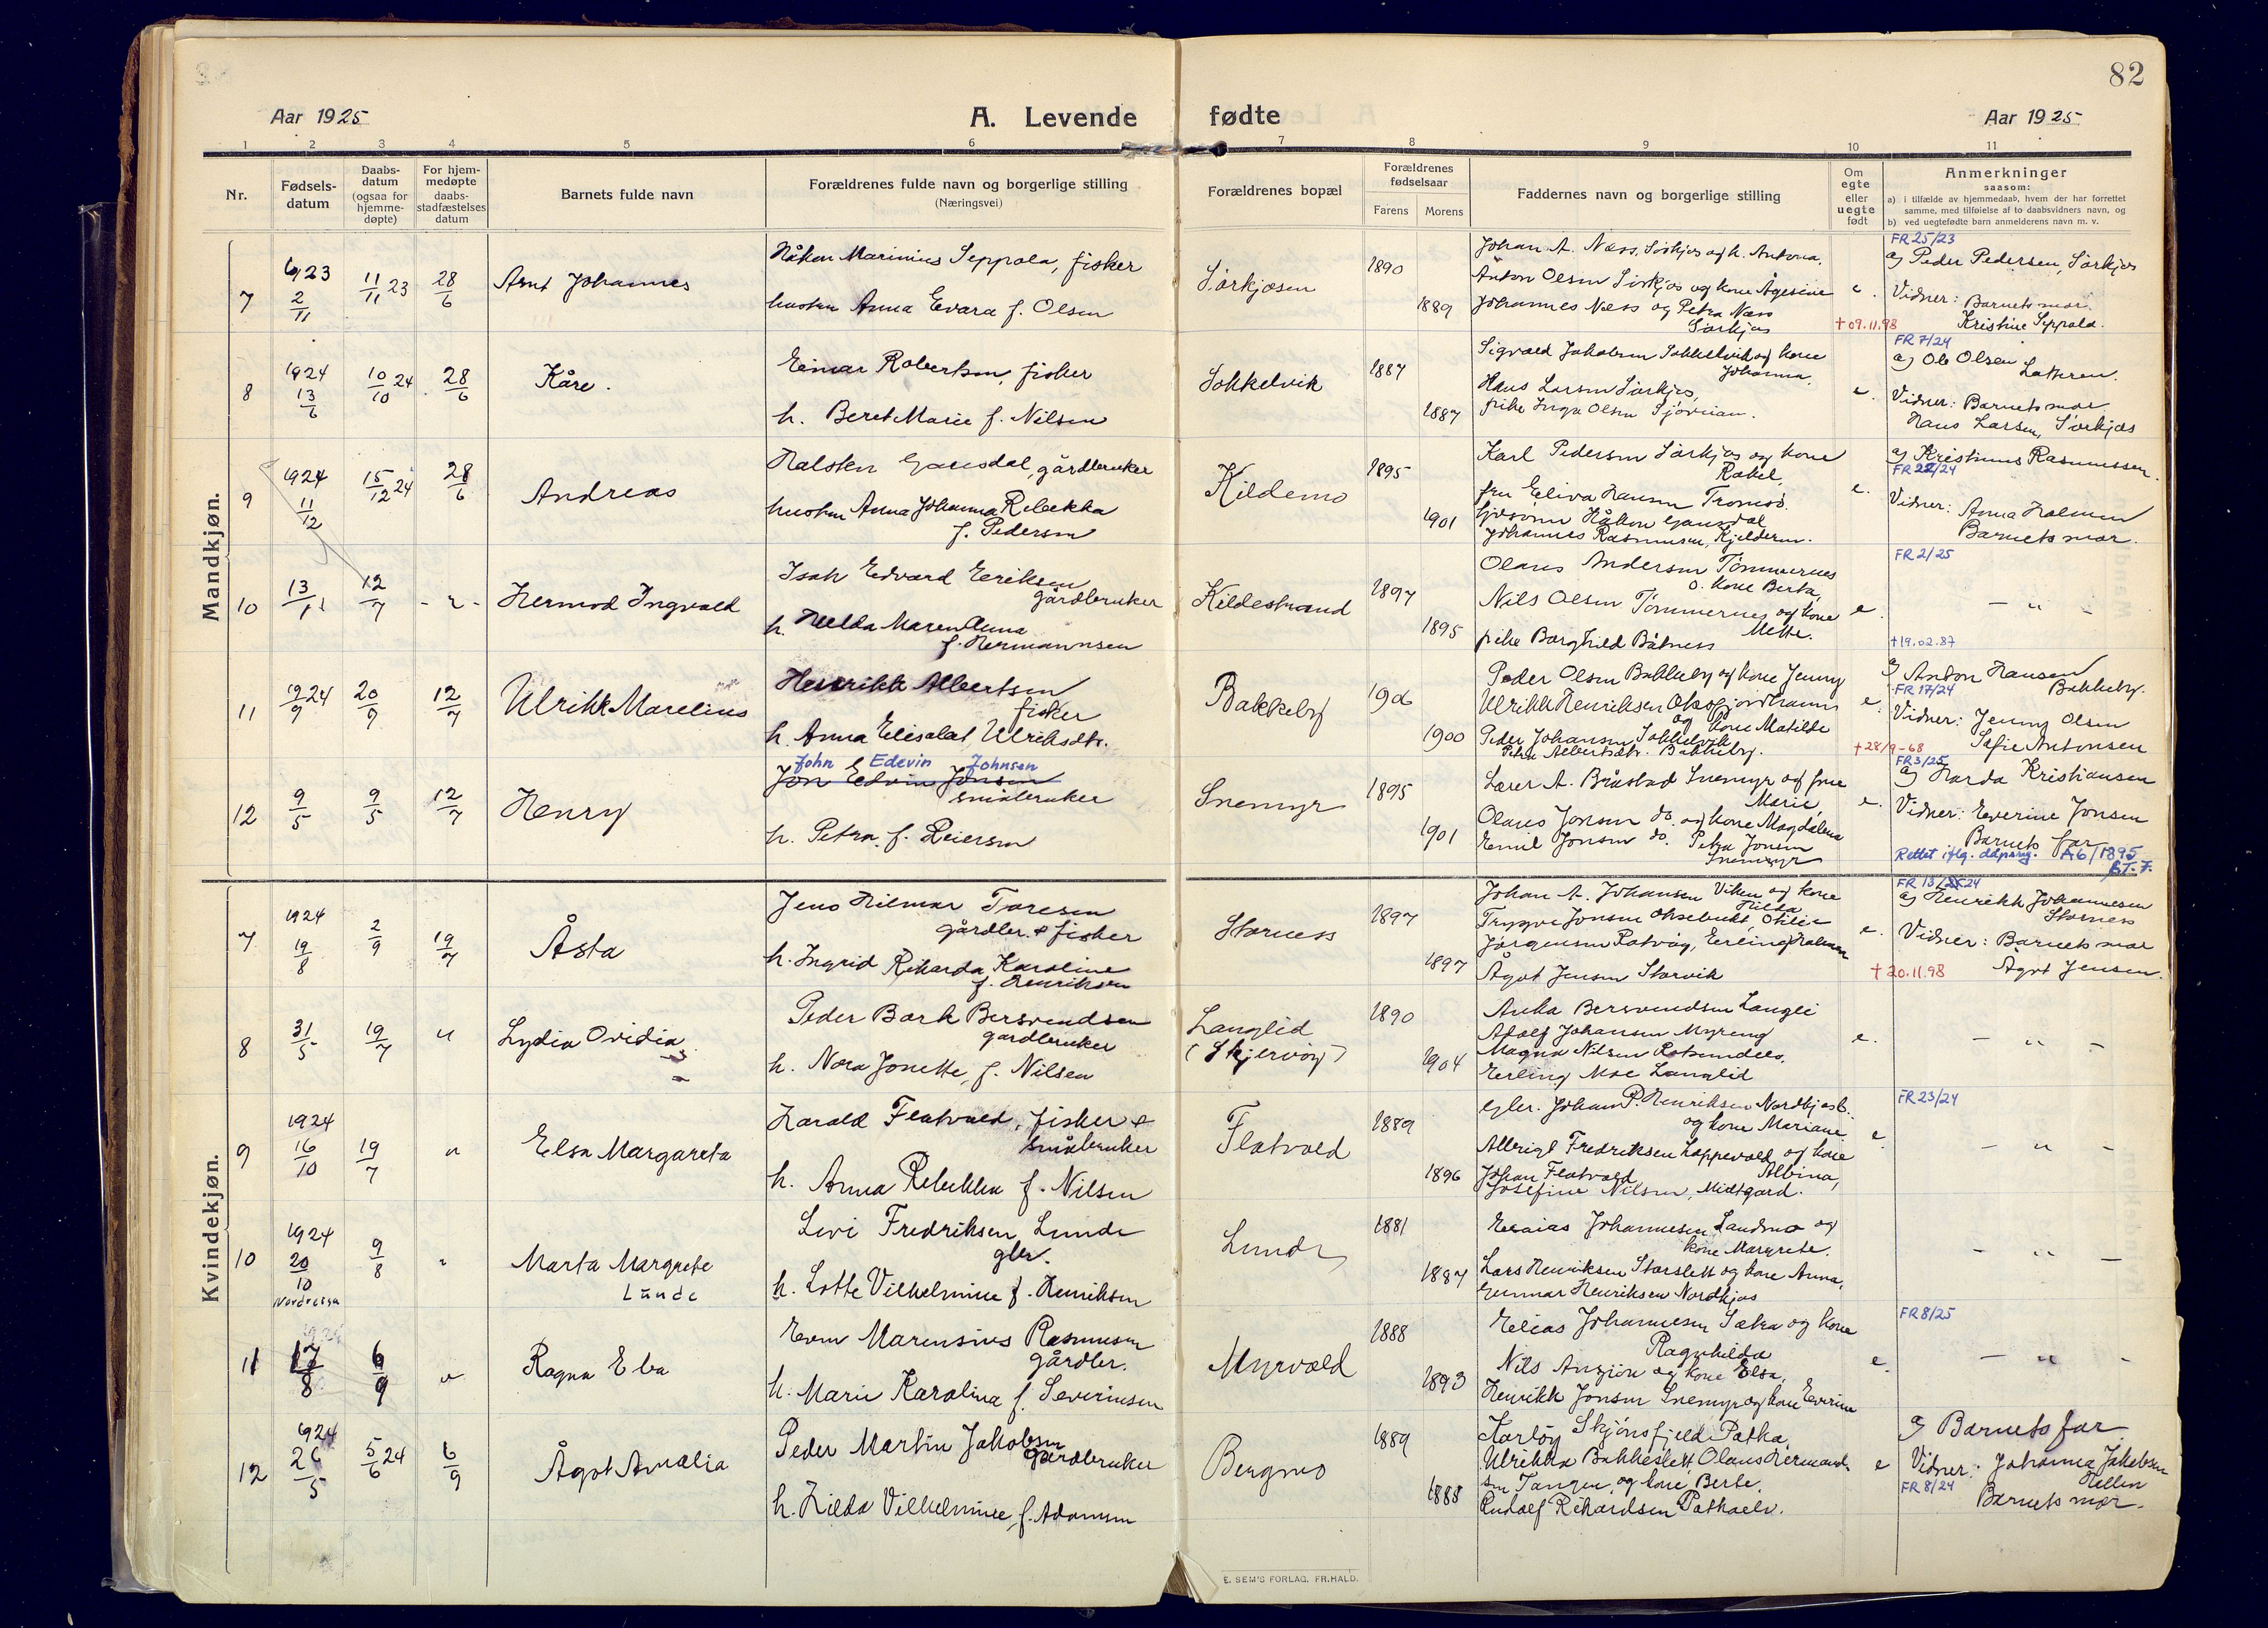 82
Aar 1925
A. Levende fødte
Aar 1925
1 2 3 4 5 6 7 8 9 10 11
Nr.
Fødsels-
datum
Daabs-
datum
(ogsaa for
hjemme-
døpte)
For hjem-
medøpte
daabs-
stadfæstelses
datum
Barnets fulde navn
Forældrenes fulde navn og borgerlige stilling
(Næringsvei)
Forældrenes bopæl
Forældrenes
fødselsaar
Farens Morens
Faddernes navn og borgerlige stilling
Om
egte
eller
uegte
født
Anmerkninger
saasom:
a) i tilfælde av hjemmedaab, hvem der har forrettet
samme, med tilføielse af to daabsvidners navn, og
b) ved uegtefødte barn anmelderens navn m. v.
Mandkjøn.
7
1923
2/11
11/11 23
28/6
Arnt Johannes
Håkon Marinius Seppola, fisker
hustru Anna Evara f. Olsen
Sørkjosen
1890
1889
Johan A. Næss, Sørkjos og h. Antona,
Anton Olsen Sørkjos og kone Ågesine
Johannes Næss og Petra Næss
Sørkjos
e.
† 09.11.98
FR 25/23
a) Peder Pedersen, Sørkjos
Vidner: Barnets mor
Kristine Seppola.
8
1924
13/6
10/10 24
28/6
Kåre.
Einar Robertsen, fisker
h. Beret Marie f. Nilsen
Sokkelvik
1887
1887
Sigvald Jakobsen Sokkelvik og kone
Johanna,
Hans Larsen Sørkjos,
pike Inga Olsen
e.
FR 7/24
a) Ole Olsen
Vidner: Barnets mor
Hans Larsen, Sørkjos
9
1924
11/12
15/12 24
28/6
Andreas
Halsten Gausdal, gårdbruker
hustru Anna Johanna Rebekka
f. Pedersen
Kildemo
1895
1901
Karl Pedersen Sørkjos og kone
Rakel,
fru Eliva Hansen Tromsø.
Håkon Gausdal
Johannes Rasmussen,
e.
a) Kristinus Rasmussen.
FR 22/24
Vidner: Anna Holmen
Barnets mor.
10
13/1
12/7
- " -
Hermod Ingvald
Isak Edvard Eriksen
gårdbruker
h. Helda Maren Anna
f. Hermannsen
Kildestrand
1897
1895
Olaus Andersen Tømmernes
o. kone Berta,
Nils Olsen Tømmernes og kone
Mette.
pike Borghild Båtnes
e
FR 2/25
- " -
† 19.02.87
11
19/9 24
20/9
12/7
Ulrikk Marelius
Henrikk Albertsen
fisker
h. Anna Elisabet Ulriksdtr.
Bakkeby
1900
Peder Olsen Bakkeby og kone Jenny
Ulrikk Henriksen
og kone Matilde
Peder Johansen Sokkelvik
Petra Albertsdtr. Bakkeby.
e.
† 28/9-68
a) Anton Hansen
Bakkeby.
FR 17/24
Vidner: Jenny Olsen
Sofie Antonsen
12
9/5
9/5
12/7
Henry
John Edevin Johnsen
Jon Edvin Jonsen
småbruker
h. Petra f. Reiersen
Snemyr
1895
1901
Lærer A. Bråstad Snemyr og frue
Marie,
Olaus Jonsen do. og kone Magdalena
Emil Jonsen do. Petra Jonsen
Snemyr
e.
FR 3/25
a) Harda Kristiansen
Vidner: Everine Jonsen
Barnets far
Rettet iflg. dåpsreg. A6/1895
BT. 7.
Kvindekjøn.
7
1924
19/8
2/9
19/7
Åsta
Jens Hilmar Toresen
gårdbr. & fisker
h. Ingrid Rikarda Karoline
f. Henriksen
Storness
1897
1897
Johan A. Johansen Viken og kone
Hilda
Trygve Jonsen
Jørgensen Rotvåg, Erling Holman
Ågot Jensen Storvik
e.
† 20.11.98
FR 13/24
a) Henrikk Johannesen
Storness
Vidner: Barnets mor
Ågot Jensen.
8
31/5
19/7
"
Lydia Ovidia
Peder Bark Bersvendsen
gårdbruker
h. Nora Jonette, f. Nilsen
Langlid
(Skjervøy)
1890
1904
Anka Bersvendsen Langli
Adolf Johansen Myreng
Magna Nilsen
Erling Moe Langlid
e.
- " -
9
1924
16/10
19/7
"
Elsa Margareta
Harald Flatvold, fisker &
småbruker
h. Anna Rebekka f. Nilsen
Flatvold
1889
1896
Gbr. Johan P. Henriksen Nordkjosb.
og kone Mariane
Albrigt Fredriksen Loppevold og kone
Albina,
Johan Flatvold
Josefine Nilsen, Midtgard.
e.
FR 23/24
- " -
10
1924
20/10
Nordreisa
9/8
"
Marta Margrete
Lunde
Levi Fredriksen Lunde
gbr.
h. Lotte Vilhelmine f. Henriksen
Lunde
1881
1887
Esaias Johannesen Sandmo og
kone Margrete.
Lars Henriksen Storslett og kone Anna,
Gunnar Henriksen Nordkjos
- " -
11
17/8
6/9
"
Ragna Eba
Even Marensius Rasmussen
gårdbr.
h. Marie Karolina f. Severinsen
Myrvold
1888
1893
Elias Johannesen Sætra og kone
Ragnhilda
Nils og kone Elsa,
Henrikk Jonsen Snemyr og kone Everine
e.
FR 8/25
- " -
12
1924
26/5
5/6 24
6/9
Ågot Amalia
Peder Martin Jakobsen
gårdbruker
h. Hilda Vilhelmine, f. Adamsen
Bergmo
1889
1888
Ulrikka Bakkeslett, Olaus Hermand-
sen Tangen, og kone Berle,
Rudolf Rikardsen
e
a) Barnets far
Vidner: Johanna Jakobsen
FR 8/24
Barnets mor.
E. SEM'S FORLAG, FR.HALD.